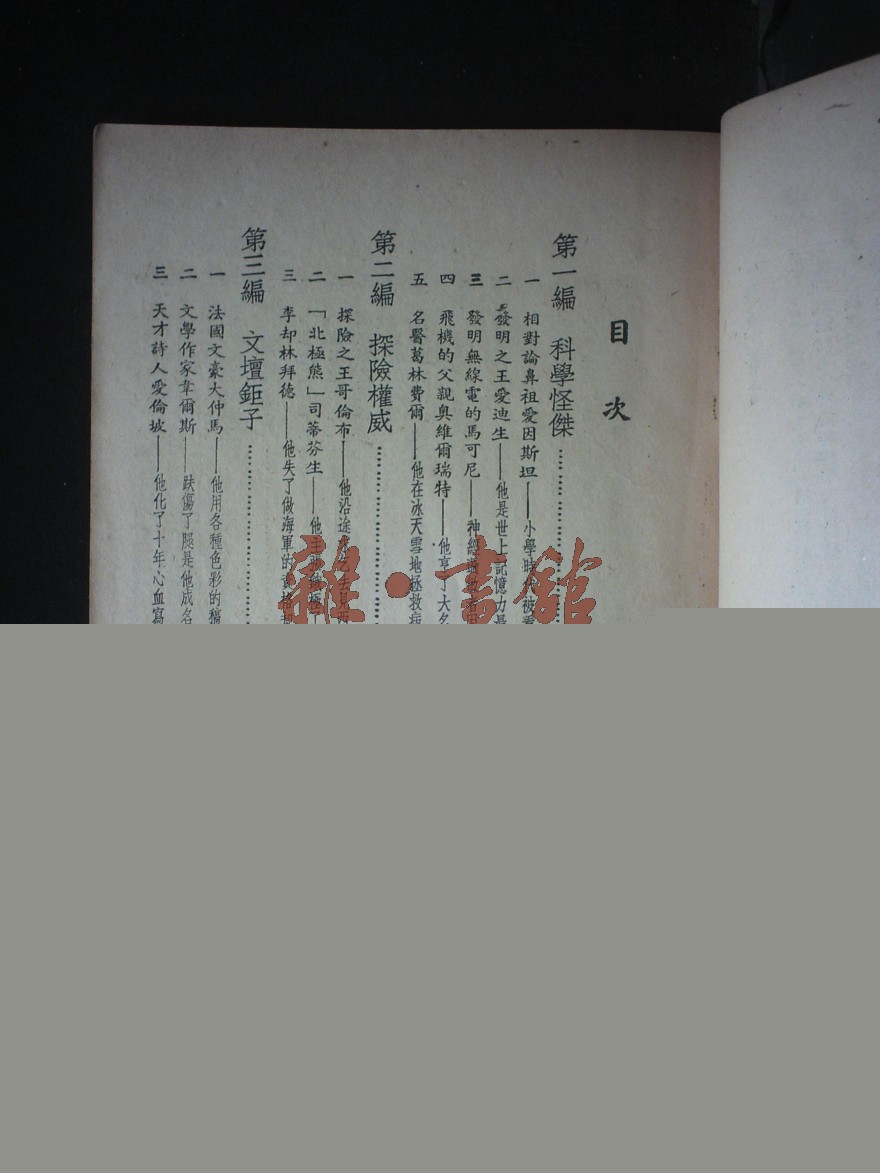 目次
第一編 科學怪傑……………………
一 相對論鼻祖愛因斯坦——小學時
二 發明之王愛迪生——他是世上記憶力最
三 發明無線電的馬可尼——神經
四 飛機的父親奧維爾瑞特——他享了大名
五 名醫葛林費爾——他在冰天雪地拯救病
第二編 探險權威……………………
一 探險之王哥倫布——他沿途求乞去見西
二 「北極熊」司蒂芬生——他主張
三 李却林拜德——他失了做海軍的資格
第三編 文壇鉅子……………………
一 法國文豪大仲馬——他用各種色彩的稿
二 文學作家韋爾斯——跌傷了腿是他成名
三 天才詩人愛倫坡——他化了十年心血寫
雜·書館